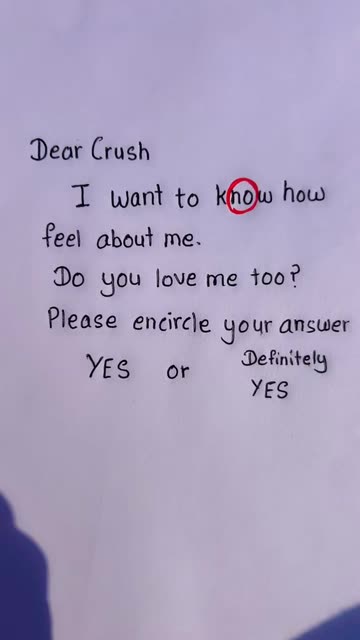 Dear Crush
I want to know how
feel about me.
Do you love me too?
Please encircle your answer
YES or Definitely
YES